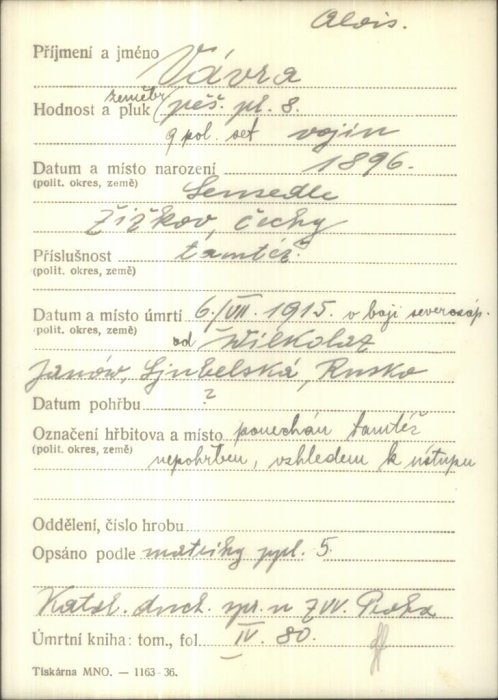 Alois.
Příjmení a jméno Vávra
Hodnost a pluk zeměbr. pěš. pl. 8.
9 pol. set vojín
Datum a místo narození 1896.
(polit. okres, země) Semedle
Žižkov, Čechy
Příslušnost tamtéž.
(polit. okres, země)
Datum a místo úmrtí 6./VII. 1915. v boji severozáp.
(polit. okres, země) od Wilkolaz
Janów, Ljubelská, Rusko
Datum pohřbu ?
Označení hřbitova a místo ponechán tamtéž
(polit. okres, země) nepohřben, vzhledem k ústupu
Oddělení, číslo hrobu
Opsáno podle matriky ppl. 5.
Katol. duch. spr. u ZVV. Praha
Úmrtní kniha: tom., fol. IV. 80.
Tiskárna MNO. — 1163-36.